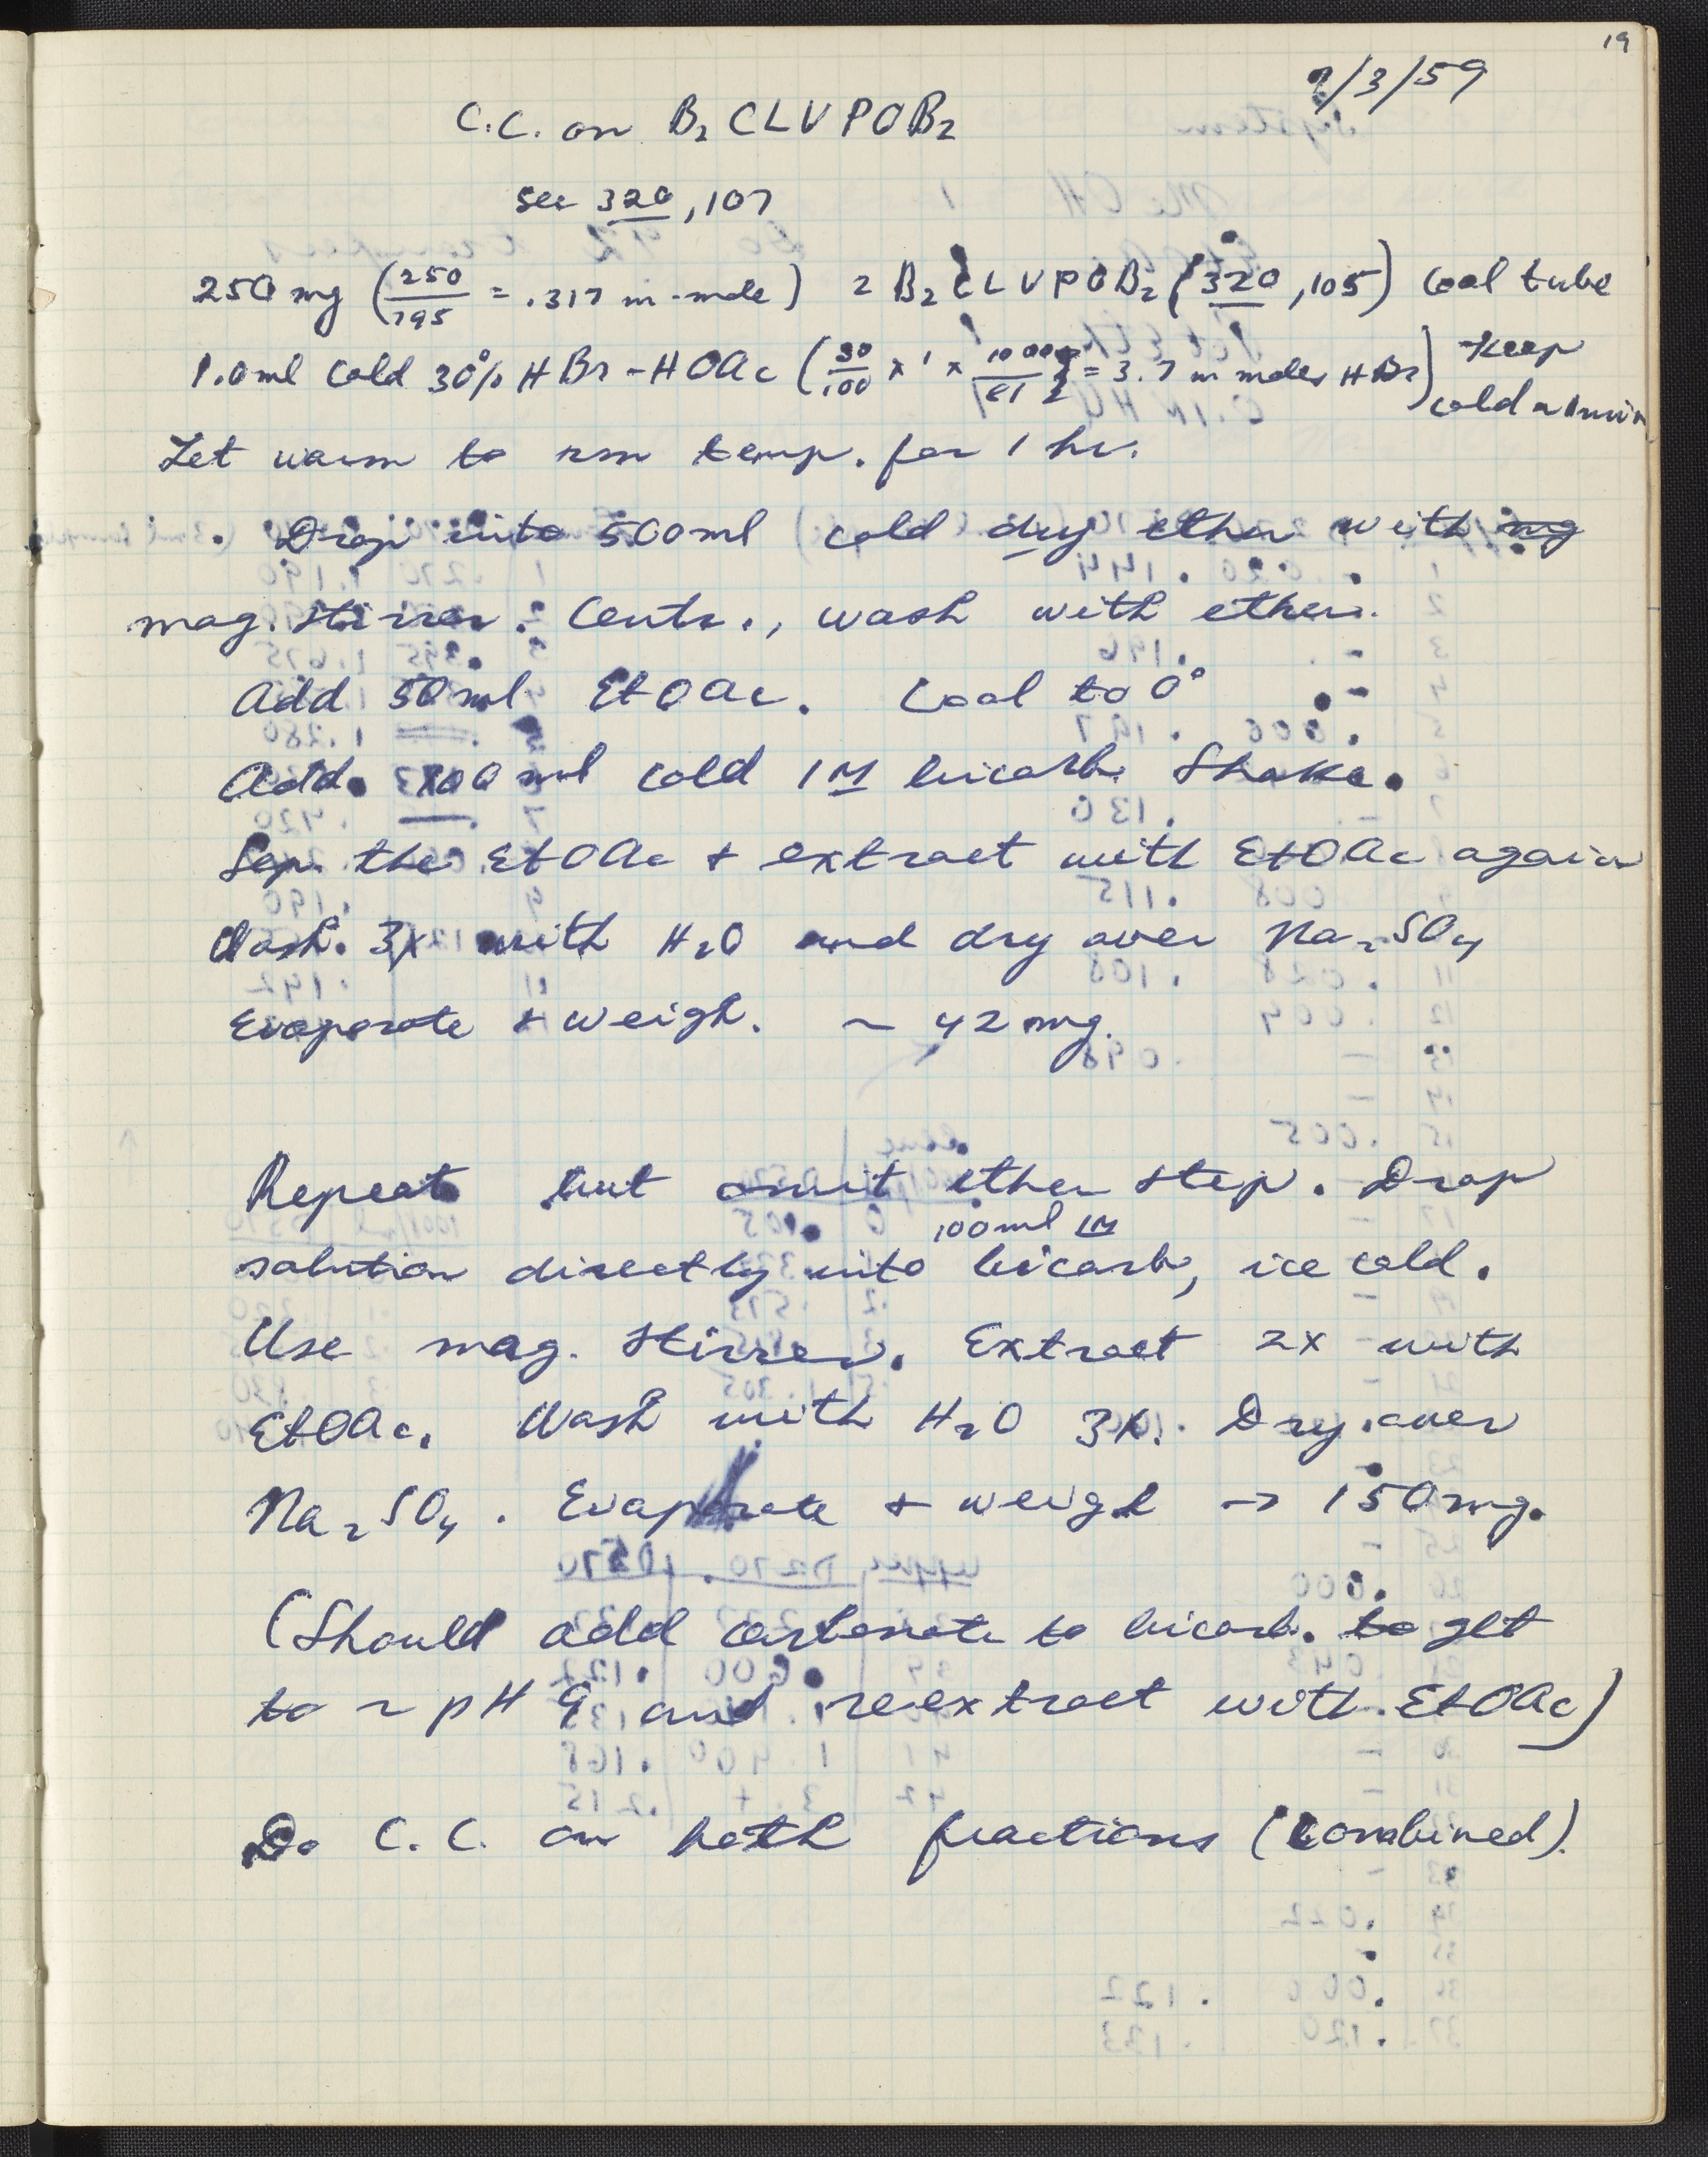 19
9/3/59
C.C. on B₂CLVPOB₂
see 320, 107
250 mg (250/795 = .317 m-mole) 2 B₂CLVPOB₂ (320, 105) Cool tube
1.0 ml cold 30% HBr-HOAc (30/100 x 1 x 1000/81 = 3.7 m moles HBr) Keep
cold ~ 1 min
Let warm to rm temp. for 1 hr.
Drop into 500 ml cold dry ether with mg
mag. stirrer. Centr., wash with ether.
Add 50 ml EtOAc. Cool to 0°
Add 100 ml cold 1M bicarb. Shake.
Sep. the EtOAc + extract with EtOAc again
Wash 3x with H₂O and dry over Na₂SO₄
Evaporate + weigh. ~ 42 mg.
Repeat but omit ether step. Drop
100 ml 1M
solution directly into bicarb, ice cold.
Use mag. stirrer. Extract 2x with
EtOAc. Wash with H₂O 3x. Dry over
Na₂SO₄. Evaporate + weigh → 150 mg.
(Should add carbonate to bicarb. to get
to ~ pH 9 and reextract with EtOAc)
Do C.C. on both fractions (combined).